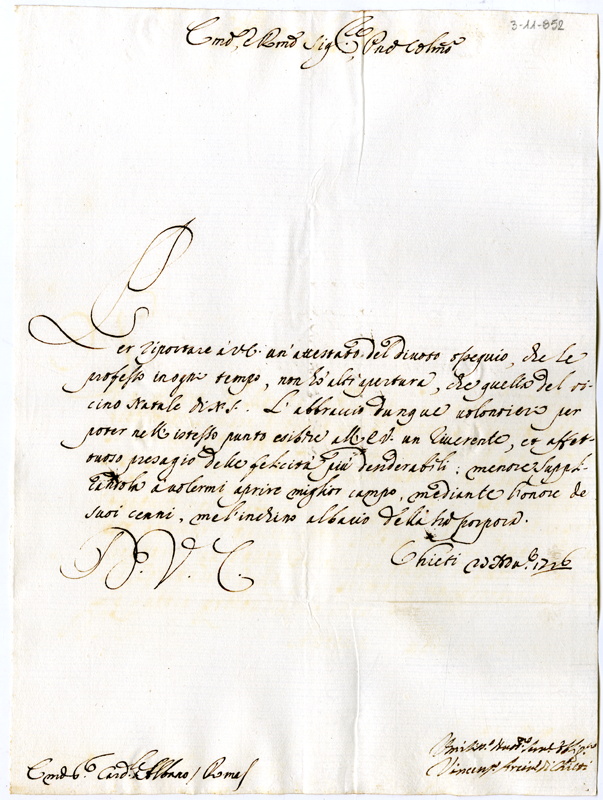 3-11-852
Em.º, e Rmo Sig.re, Pne Colmo
Per riportare à V.E. un'attestato del divoto ossequio, che le
professo in ogni tempo, non hò altr'apertura, che quella del vi=
cino Natale di N.S. L'abbraccio dunque volontieri per
poter nell'istesso punto esibire all'E.V. un riverente, et affet=
tuoso presagio delle felicità più desiderabili; mentre suppli=
candola a volermi aprire miglior campo, mediante l'onore de
suoi cenni, me l'inchino al bacio della porpora.
D. V. E.
Chieti 1726
Card. Albano / Roma /
Vincenzo Arciv.o di Chieti